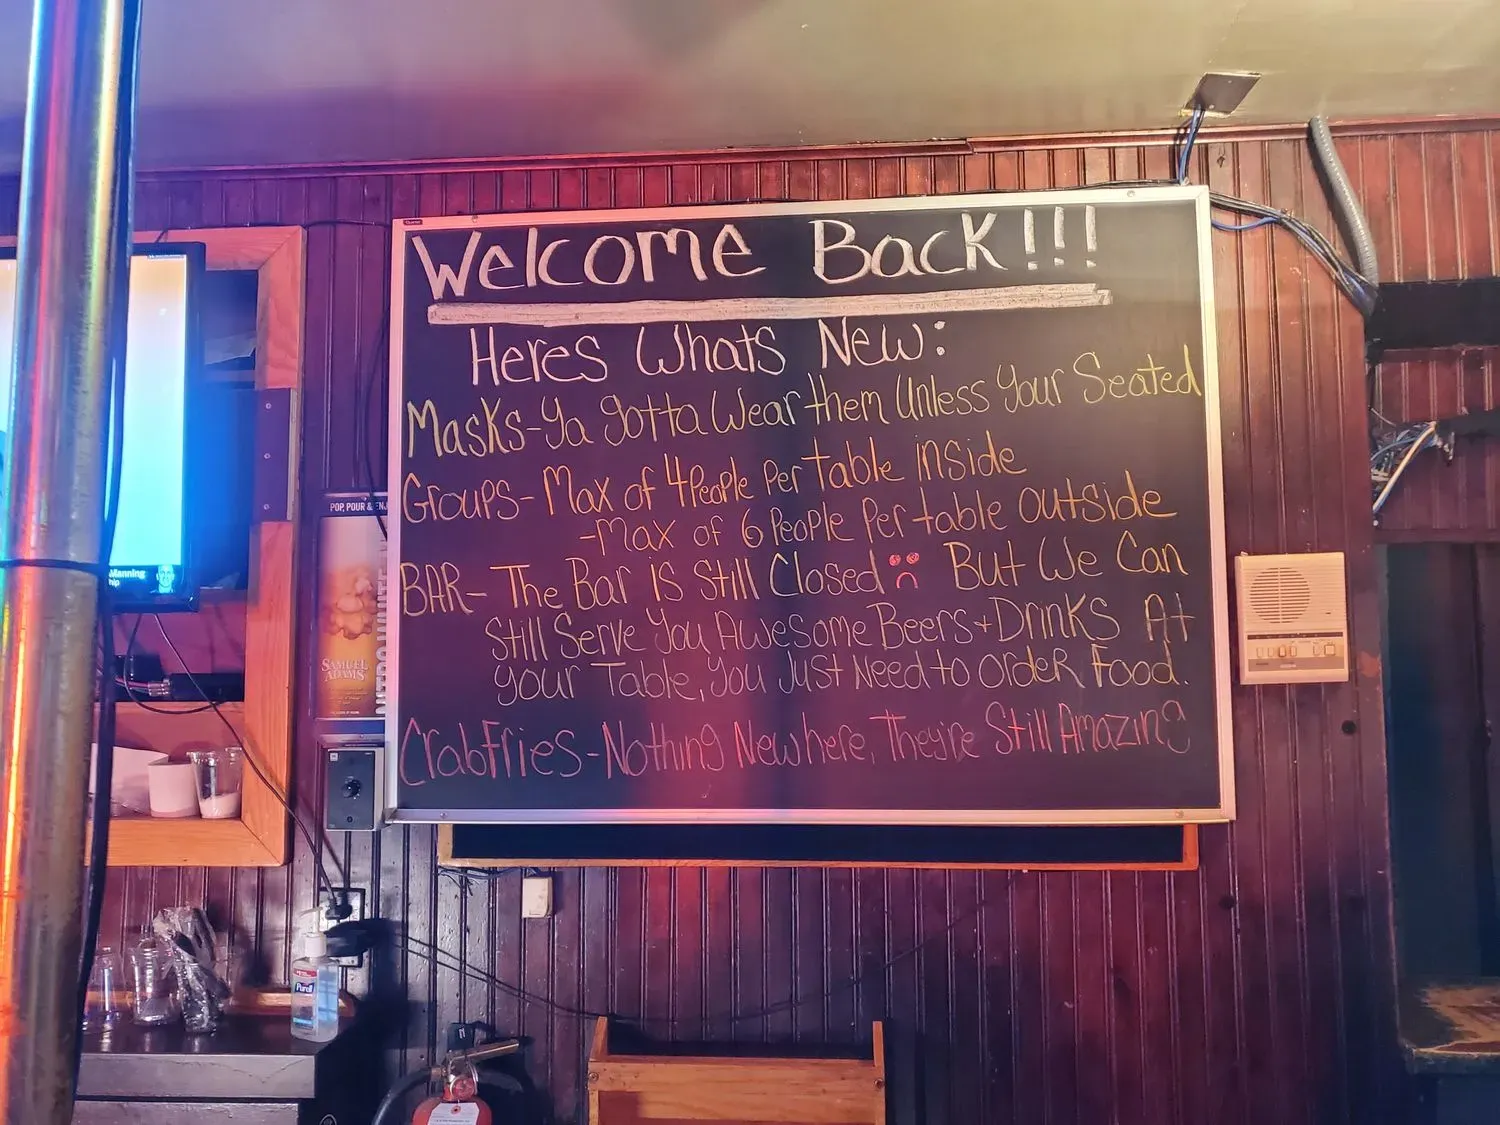 Welcome Back!!!
Heres Whats New:
Masks-Ya gotta Wear them Unless Your Seated
Groups- Max of 4 People Per table inside
-Max of 6 People Per table outside
BAR- The Bar is Still Closed But We Can
Still Serve You Awesome Beers + Drinks At
your Table, You Just Need to order Food.
CrabFries-Nothing New here, They're Still Amazing
Manning
POP, POUR & ENJ
SAMUEL
ADAMS
Purell